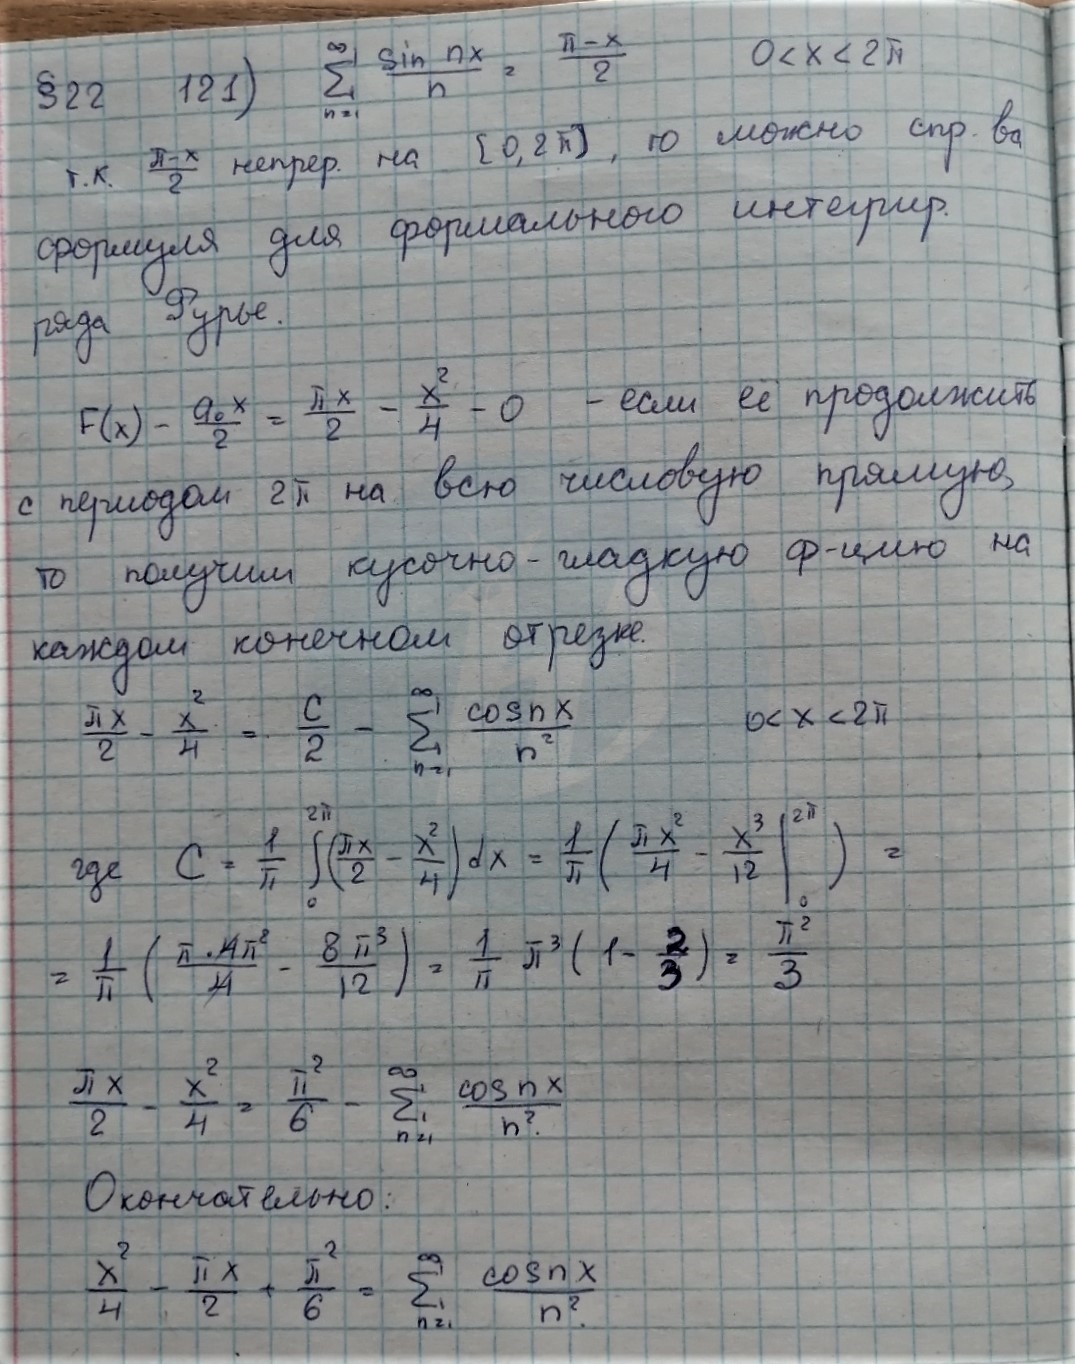 §22 121) ∑_{n=1}^{∞} sin nx / n = (π-x)/2 0<x<2π
т.к. (π-x)/2 непрер. на [0,2π], то можно спр. ва
формуля для формального интегрир.
ряда Фурье.
F(x) - a₀x/2 = πx/2 - x²/4 - 0 - если её продолжить
с периодом 2π на всю числовую прямую,
то получим кусочно-гладкую ф-цию на
каждом конечном отрезке.
πx/2 - x²/4 = C/2 - ∑_{n=1}^{∞} cos nx / n² 0<x<2π
где C = 1/π ∫_0^{2π} (πx/2 - x²/4) dx = 1/π ( πx²/4 - x³/12 |_0^{2π} ) =
= 1/π ( π·4π²/4 - 8π³/12 ) = 1/π π³ ( 1 - 2/3 ) = π²/3
πx/2 - x²/4 = π²/6 - ∑_{n=1}^{∞} cos nx / n².
Окончательно:
x²/4 - πx/2 + π²/6 = ∑_{n=1}^{∞} cos nx / n².